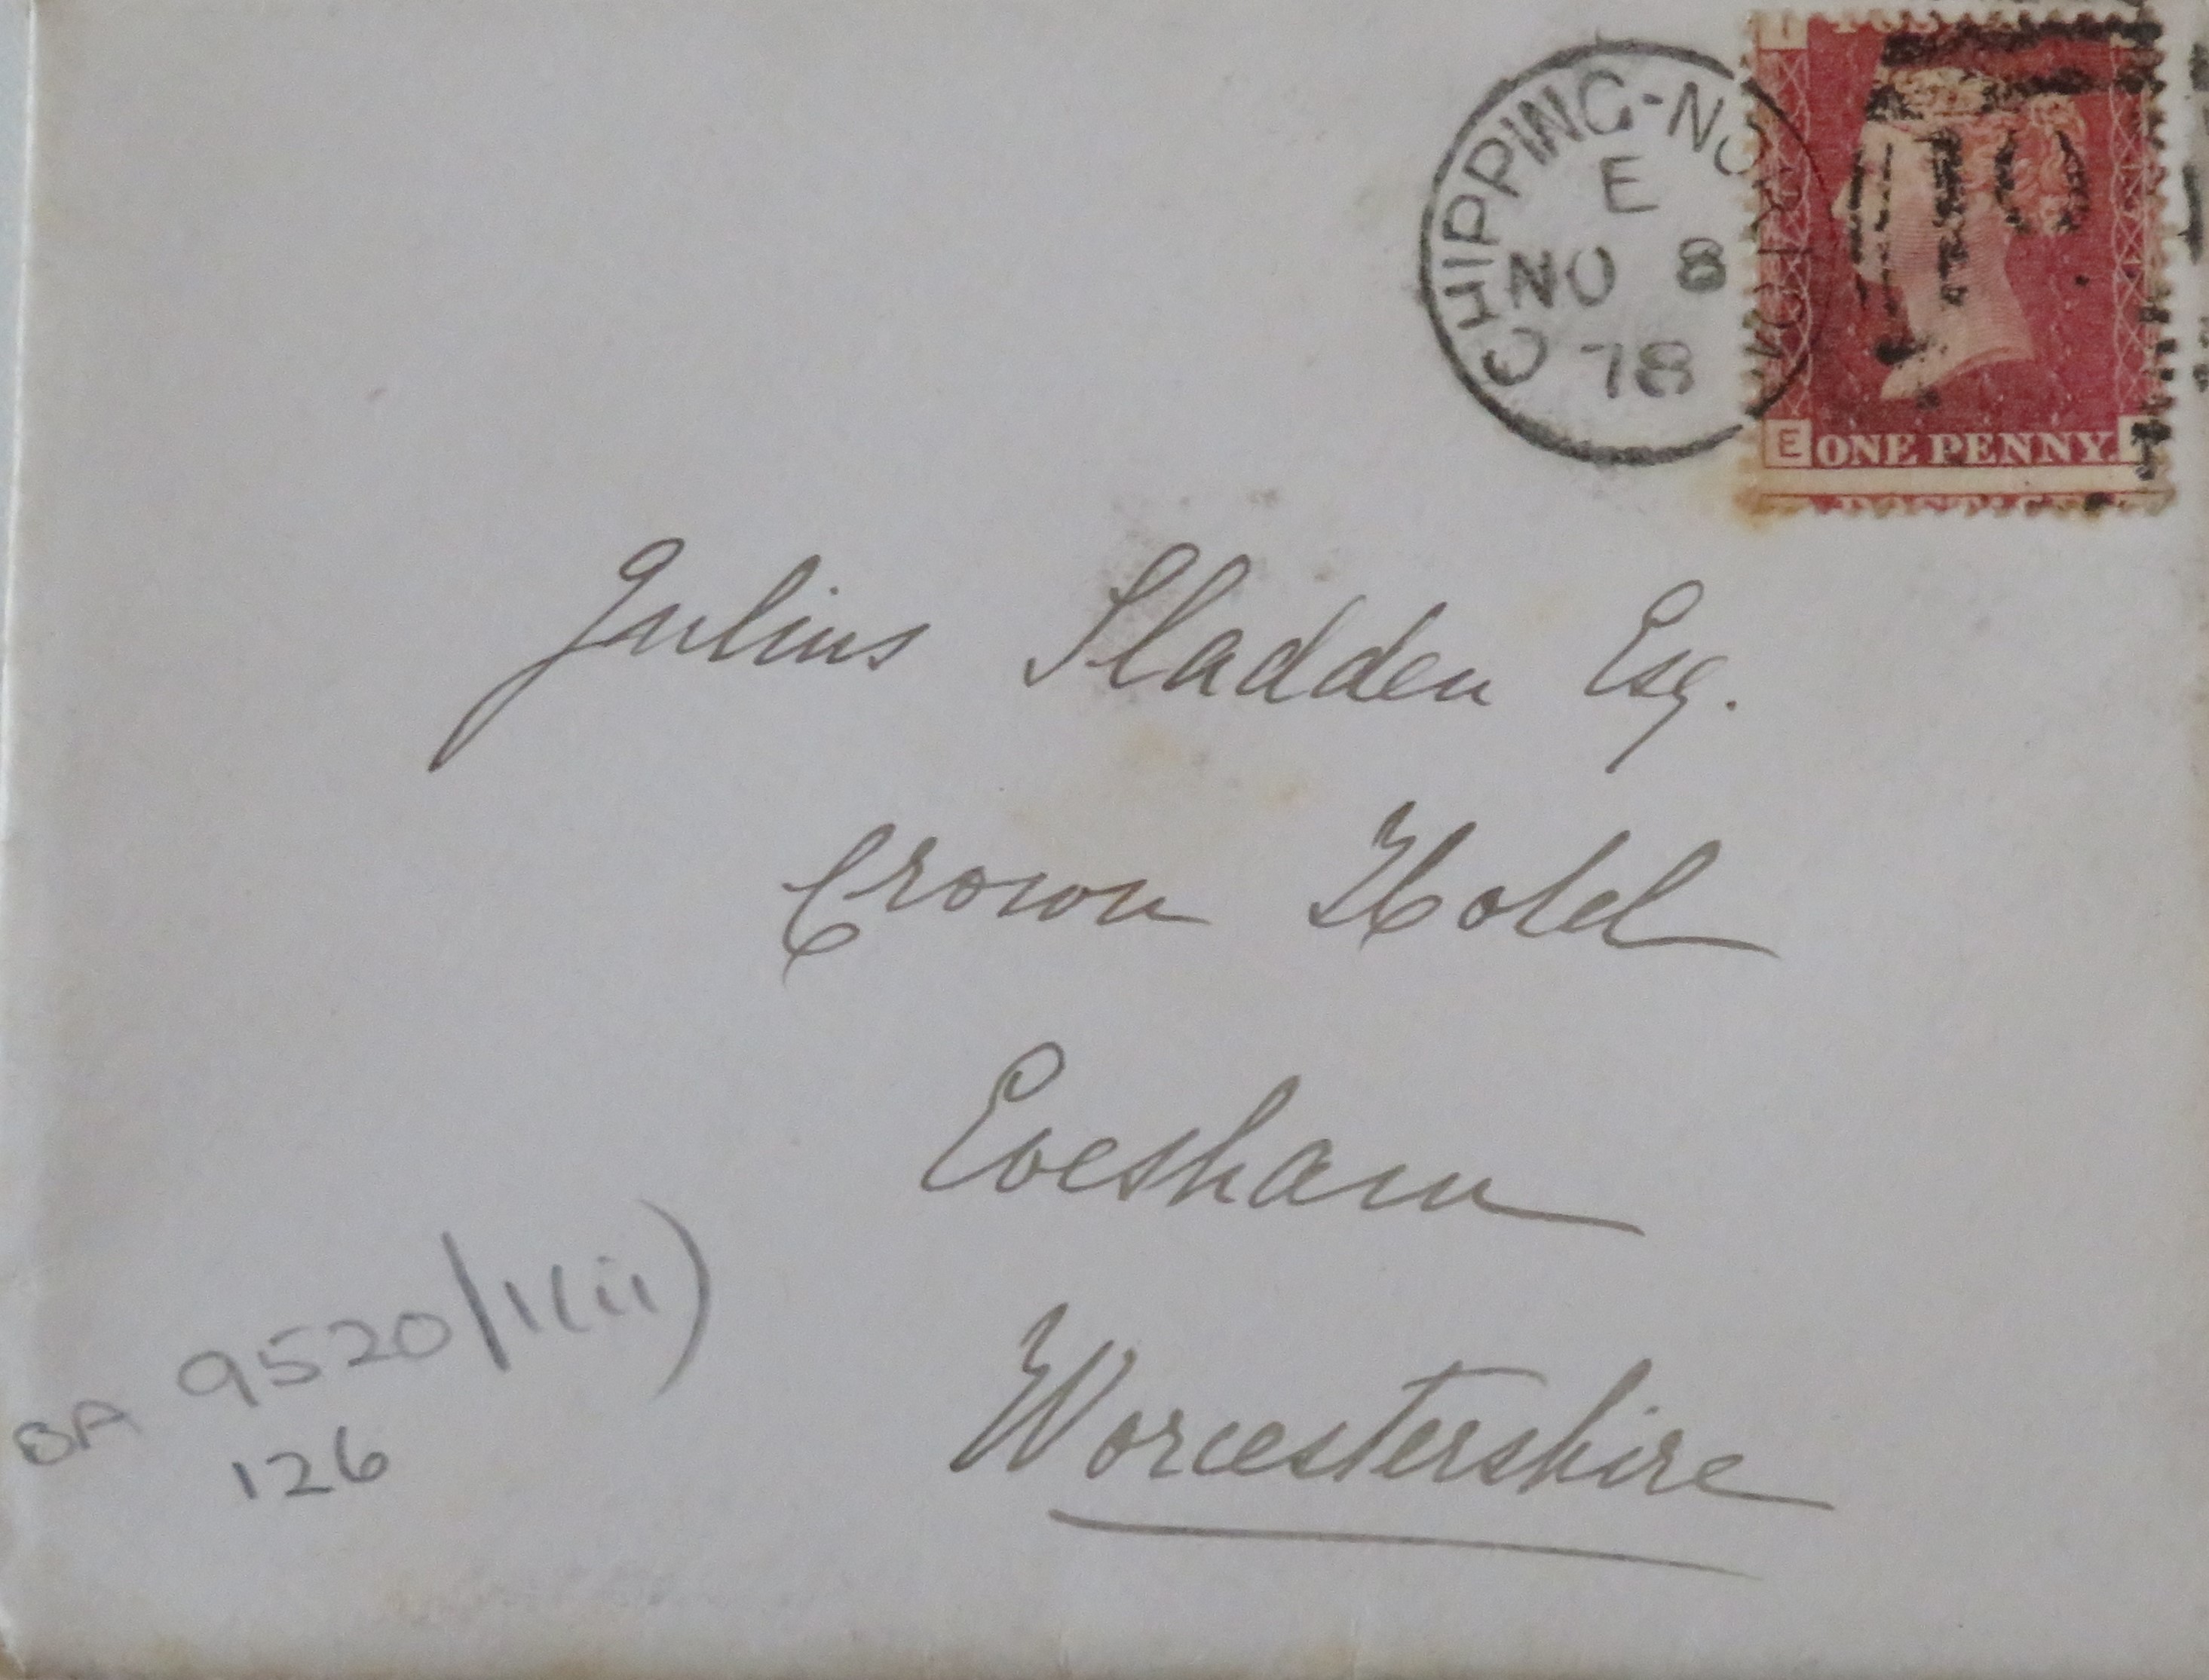 CHIPPING-NORTON
E
NO 8
78
E ONE PENNY.
Julius Sladden Esq.
Crown Hotel
Evesham
Worcestershire
BA 9520/1(ii)
126